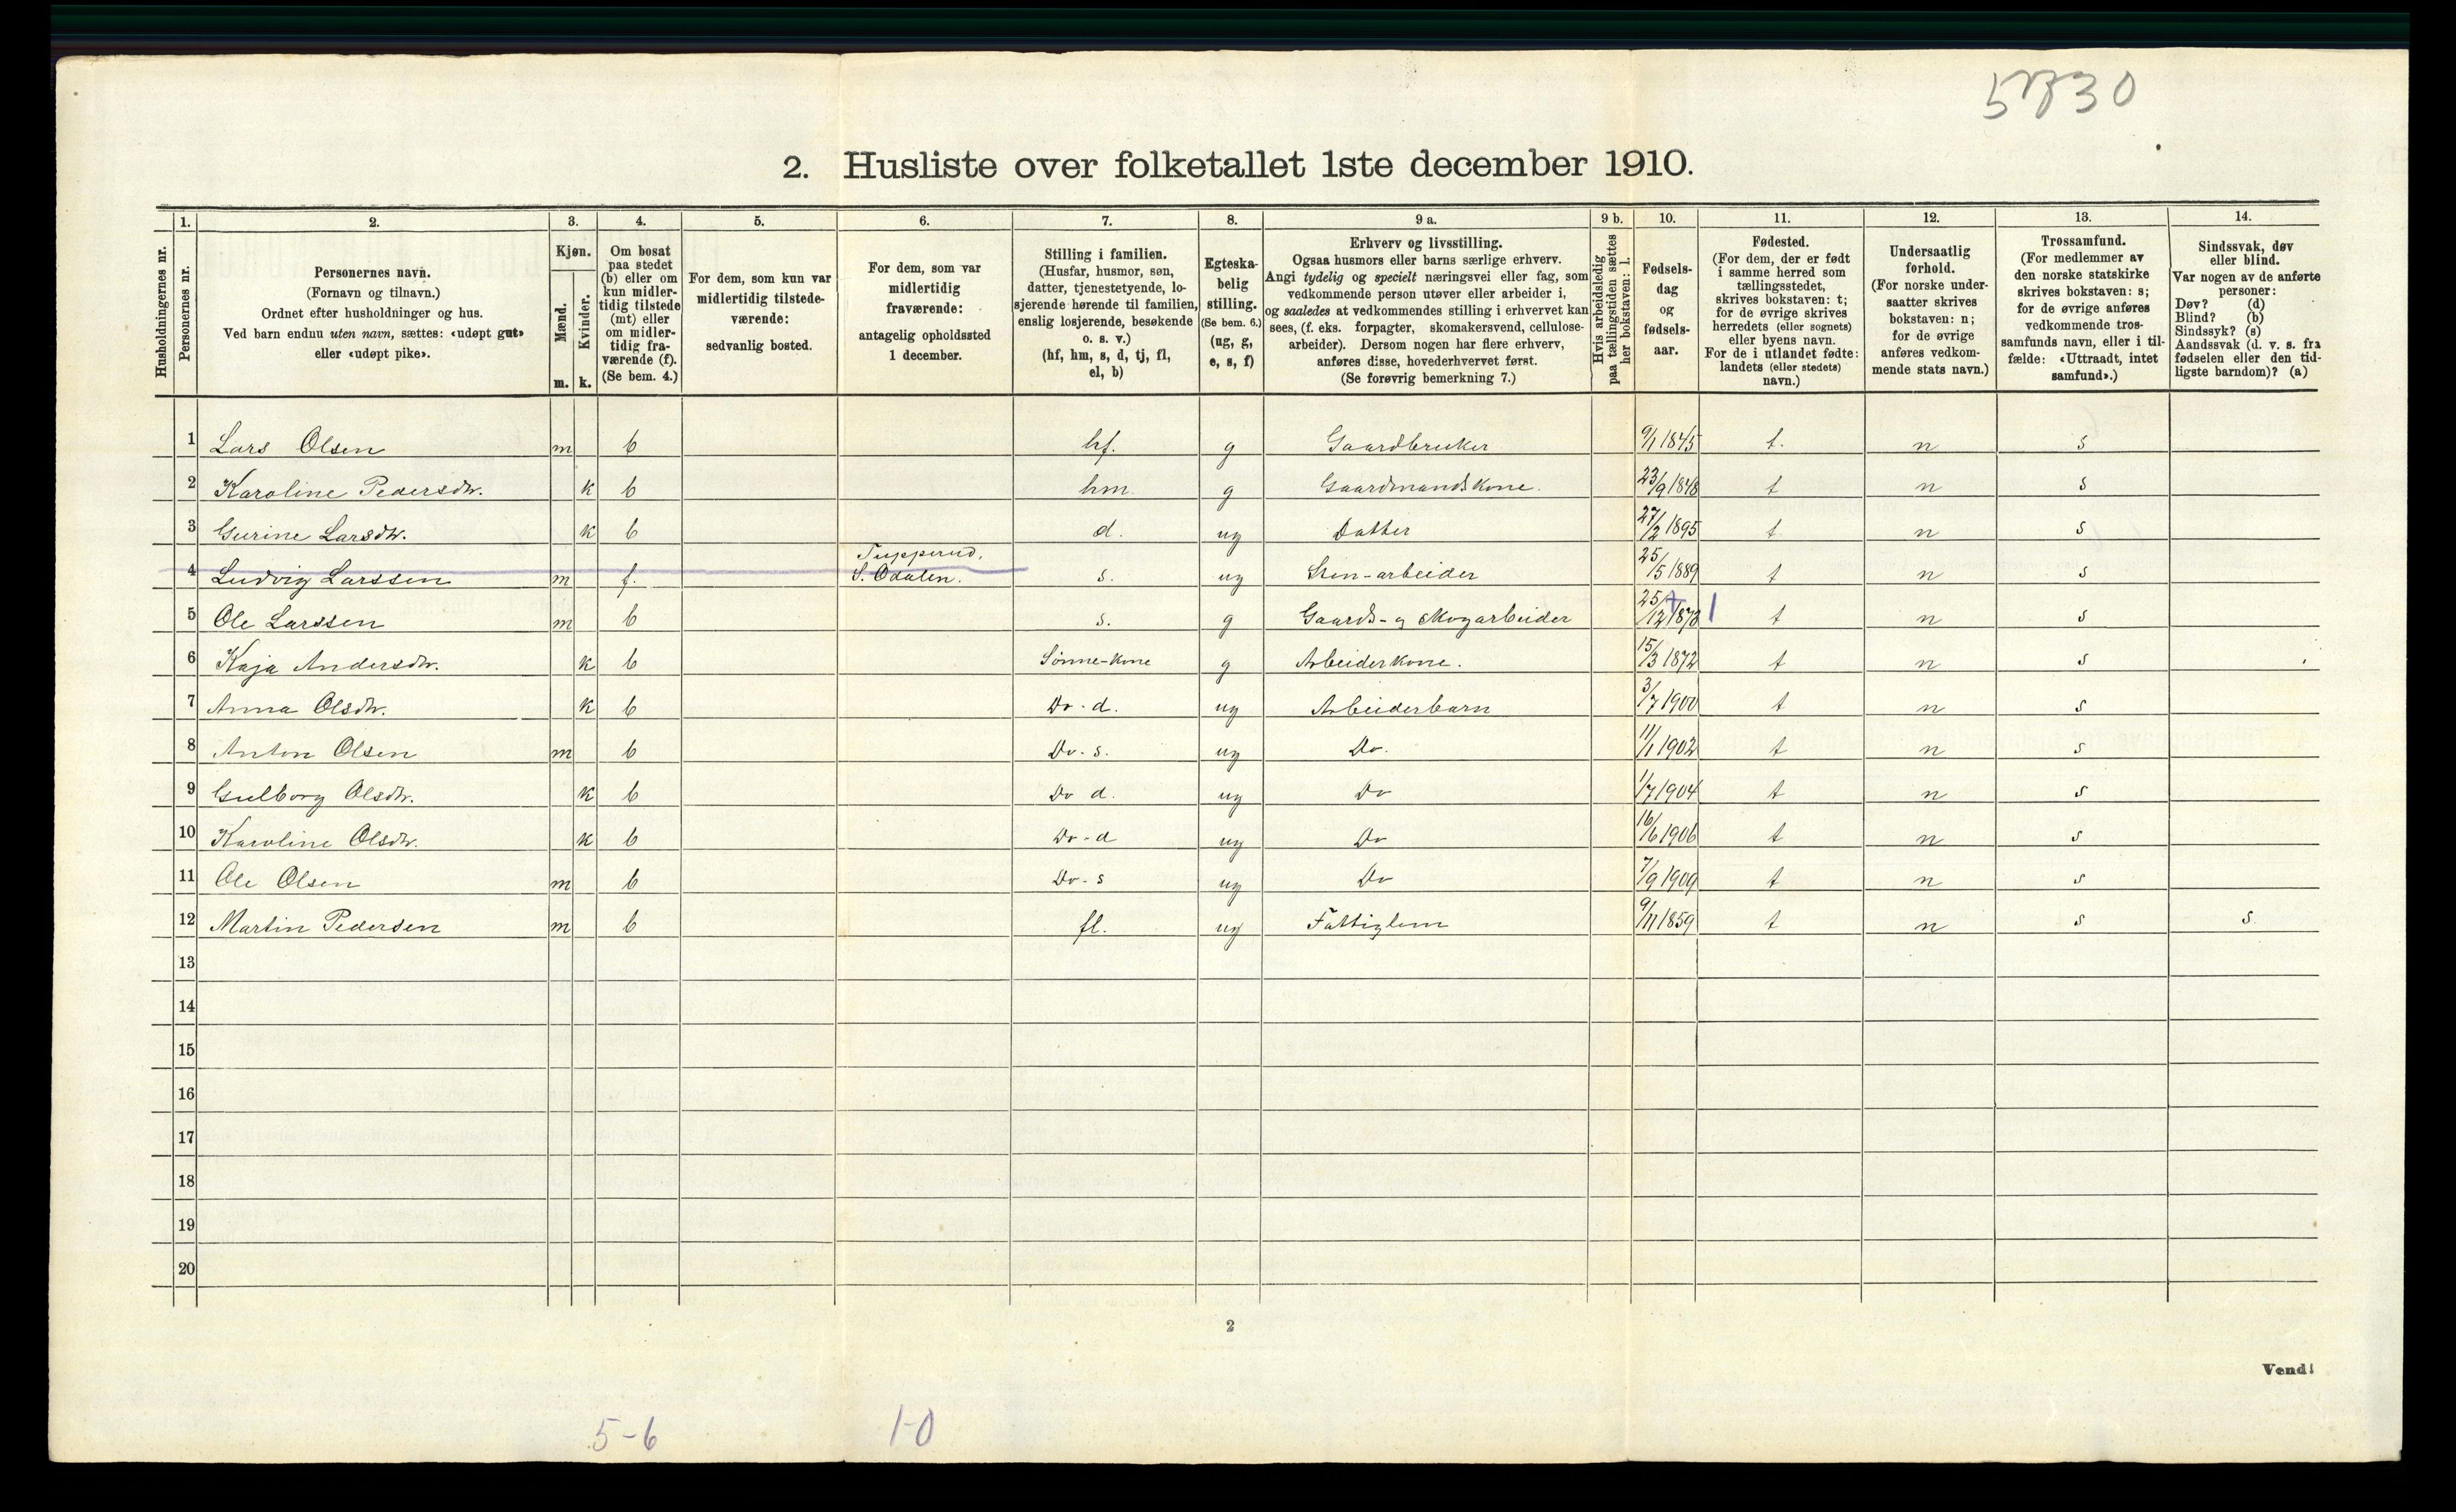 5830
2. Husliste over folketallet 1ste december 1910.
1. 2. 3. 4. 5. 6. 7. 8. 9 a. 9 b. 10. 11. 12. 13. 14.
Husholdningernes nr.
Personernes nr.
Personernes navn.
(Fornavn og tilnavn.)
Ordnet efter husholdninger og hus.
Ved barn endnu uten navn, sættes: «udøpt gut»
eller «udøpt pike».
Kjøn.
Mænd.
Kvinder.
m. k.
Om bosat
paa stedet
(b) eller om
kun midler-
tidig tilstede
(mt) eller
om midler-
tidig fra-
værende (f).
(Se bem. 4.)
For dem, som kun var
midlertidig tilstede-
værende:
sedvanlig bosted.
For dem, som var
midlertidig
fraværende:
antagelig opholdssted
1 december.
Stilling i familien.
(Husfar, husmor, søn,
datter, tjenestetyende, lo-
sjerende hørende til familien,
enslig losjerende, besøkende
o. s. v.)
(hf, hm, s, d, tj, fl,
el, b)
Egteska-
belig
stilling.
(Se bem. 6.)
(ug, g,
e, s, f)
Erhverv og livsstilling.
Ogsaa husmors eller barns særlige erhverv.
Angi tydelig og specielt næringsvei eller fag, som
vedkommende person utøver eller arbeider i,
og saaledes at vedkommendes stilling i erhvervet kan
sees, (f. eks. forpagter, skomakersvend, cellulose-
arbeider). Dersom nogen har flere erhverv,
anføres disse, hovederhvervet først.
(Se forøvrig bemerkning 7.)
Hvis arbeidsledig
paa tællingstiden sættes
her bokstaven: l.
Fødsels-
dag
og
fødsels-
aar.
Fødested.
(For dem, der er født
i samme herred som
tællingsstedet,
skrives bokstaven: t;
for de øvrige skrives
herredets (eller sognets)
eller byens navn.
For de i utlandet fødte:
landets (eller stedets)
navn.)
Undersaatlig
forhold.
(For norske under-
saatter skrives
bokstaven: n;
for de øvrige
anføres vedkom-
mende stats navn.)
Trossamfund.
(For medlemmer av
den norske statskirke
skrives bokstaven: s;
for de øvrige anføres
vedkommende tros-
samfunds navn, eller i til-
fælde: «Uttraadt, intet
samfund».)
Sindssvak, døv
eller blind.
Var nogen av de anførte
personer:
Døv? (d)
Blind? (b)
Sindssyk? (s)
Aandssvak (d. v. s. fra
fødselen eller den tid-
ligste barndom)? (a)
1 Lars Olsen m b hf. g Gaardbruker 9/1 1845 t. n s
2 Karoline Pedersdtr. k b hm. g Gaardmandskone. 23/9 1848 t n s
3 Gurine Larsdtr. k b d. ug Datter 27/2 1895 t n s
Tupperud,
4 Ludvig Larssen m f. S. Odalen. s. ug Sten-arbeider 25/5 1889 t n s
5 Ole Larssen m b s. g Gaards- og Skogarbeider 25/12 1873 t n s
6 Kaja Andersdtr. k b Sønne-kone g Arbeiderkone. 15/3 1872 t n s
7 Anna Olsdtr. k b Do - d. ug Arbeiderbarn 3/7 1900 t n s
8 Anton Olsen m b Do - s. ug Do. 11/1 1902 t n s
9 Gulborg Olsdtr. k b Do d. ug Do 1/7 1904 t n s
10 Karoline Olsdtr. k b Do - d ug Do 16/6 1906 t n s
11 Ole Olsen m b Do - s ug Do 7/9 1909 t n s
12 Martin Pedersen m b fl. ug Fattiglem 9/11 1859 t n s s.
13
14
15
16
17
18
19
20
2
Vend!
5-6 1-0